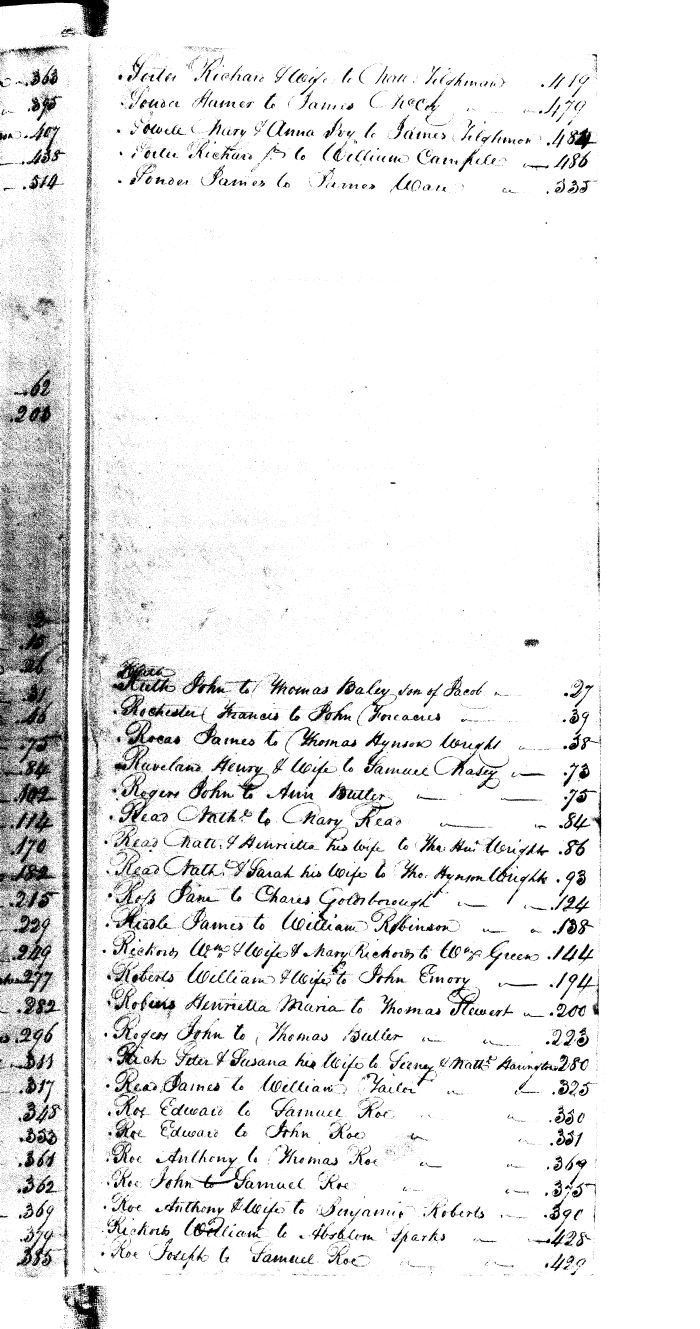 .363
.395
.407
.435
.514
.62
.203
.2
.15
.26
.31
.46
.75
.84
.102
.114
.170
.182
.215
.229
.249
.277
.282
.296
.311
.317
.348
.353
.361
.362
.369
.379
.385
Porter Richard & Wife to Matt. Tilghman .419
Ponder Humer to James McCoy .479
Powell Mary & Anna Ivy to James Tilghman .484
Porter Richard Jr to William Campile .486
Ponder James to James Ware .335
Ruth John to Thomas Baley son of Jacob .27
Rochester Francis to John Foreacres .39
Rocas James to Thomas Hynson Wright .38
Raveland Henry & Wife to Samuel Kasey .73
Rogers John to Ann Butler .75
Read Nathl. to Mary Read .84
Read Natt. & Henrietta his wife to Tho. Hn. Wright .86
Read Nathl. & Sarah his Wife to Tho. Hynson Wright .93
Ross Jane to Chares Goldsborough .124
Riddle James to William Robinson .138
Rickords Wm. & Wife & Mary Rickords to Wm. Green .144
Roberts William & Wife to John Emory .194
Robins Henrietta Maria to Thomas Stewert .200
Rogers John to Thomas Butler .223
Rich Peter & Susana his Wife to & Natt. Harington .280
Read James to William Tailor .325
Roe Edward to Samuel Roe .330
Roe Edward to John Roe .331
Roe Anthony to Thomas Roe .369
Roe John to Samuel Roe .375
Roe Anthony & Wife to Benjamin Roberts .390
Rickords William to Absolom Sparks .428
Roe Joseph to Samuel Roe .429